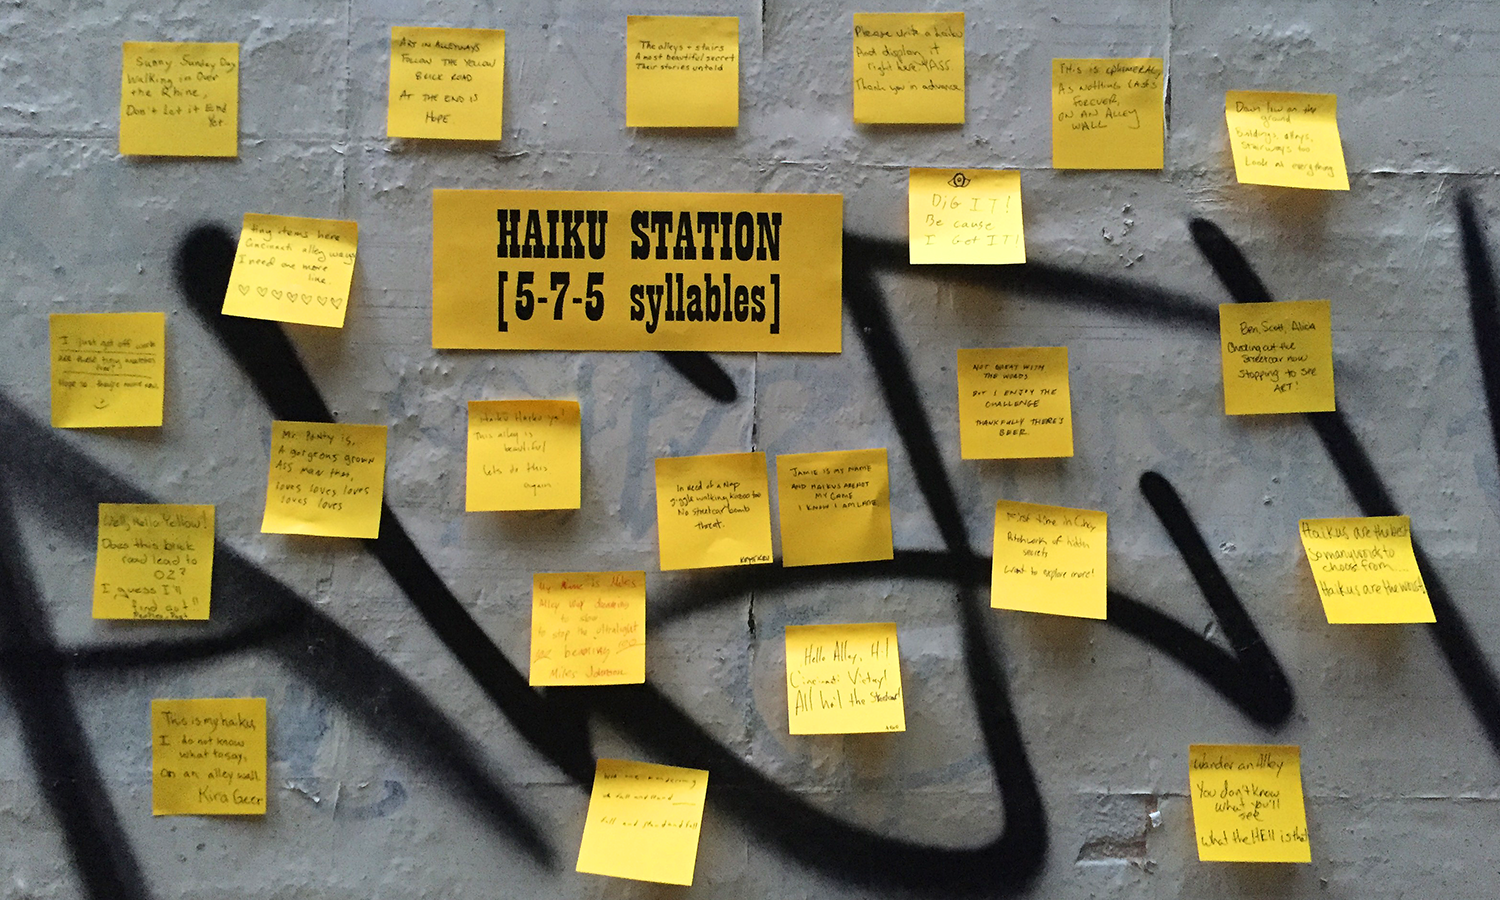 Sunny Sunday Day
Walking in Over
the Rhine,
Don't Let it End
Yet.
ART IN ALLEYWAYS
FOLLOW THE YELLOW
BRICK ROAD
AT THE END IS
HOPE.
The alleys + stairs
A most beautiful secret
Their stories untold
Please write a haiku
And display it
right here, YASS.
Thank you in advance.
THIS IS EPHEMERAL,
AS NOTHING LASTS
FOREVER,
ON AN ALLEY
WALL
Down low on the
ground
Buildings, alleys,
stairways too
Look at everything
HAIKU STATION
[5-7-5 syllables]
DiG IT!
Be cause
I Get IT!
tiny items here
Cincinnati alley ways
I need one more
line.
I just got off work
Hope so. they're more now.
Ben, Scott, Alicia
Checking out the
Streetcar now
Stopping to see
ART!
NOT GREAT WITH
THE WORDS
BUT I ENJOY THE
CHALLENGE
THANKFULLY THERE'S
BEER
Mr. Panty is,
A gorgeous grown
Ass man that,
loves loves loves
loves loves
Haiku Haiku ya!
This alley is
beautiful
lets do this
again
In need of a Nap
giggle walking too
No streetcar bomb
threat.
JAMIE IS MY NAME
AND HAIKUS ARE NOT
MY GAME
I KNOW I AM LAME
Well, Hello Yellow!
Does this brick
road lead to
OZ?
I guess I'll
find out!!
First time in Cincy
Patchwork of hidden
secrets
Want to explore more!
Haikus are the best
So many words to
choose from....
Haikus are the worst!
My Name Is Miles
to stop the
bending
Miles Johnson
Hello Alley, Hi!
Cincinnati Victory!
All hail the Streetcar!
This is my haiku
I do not know
what to say,
On an alley wall.
Kira Geer
Wander an Alley
You don't know
what you'll
see
What the HELL is that